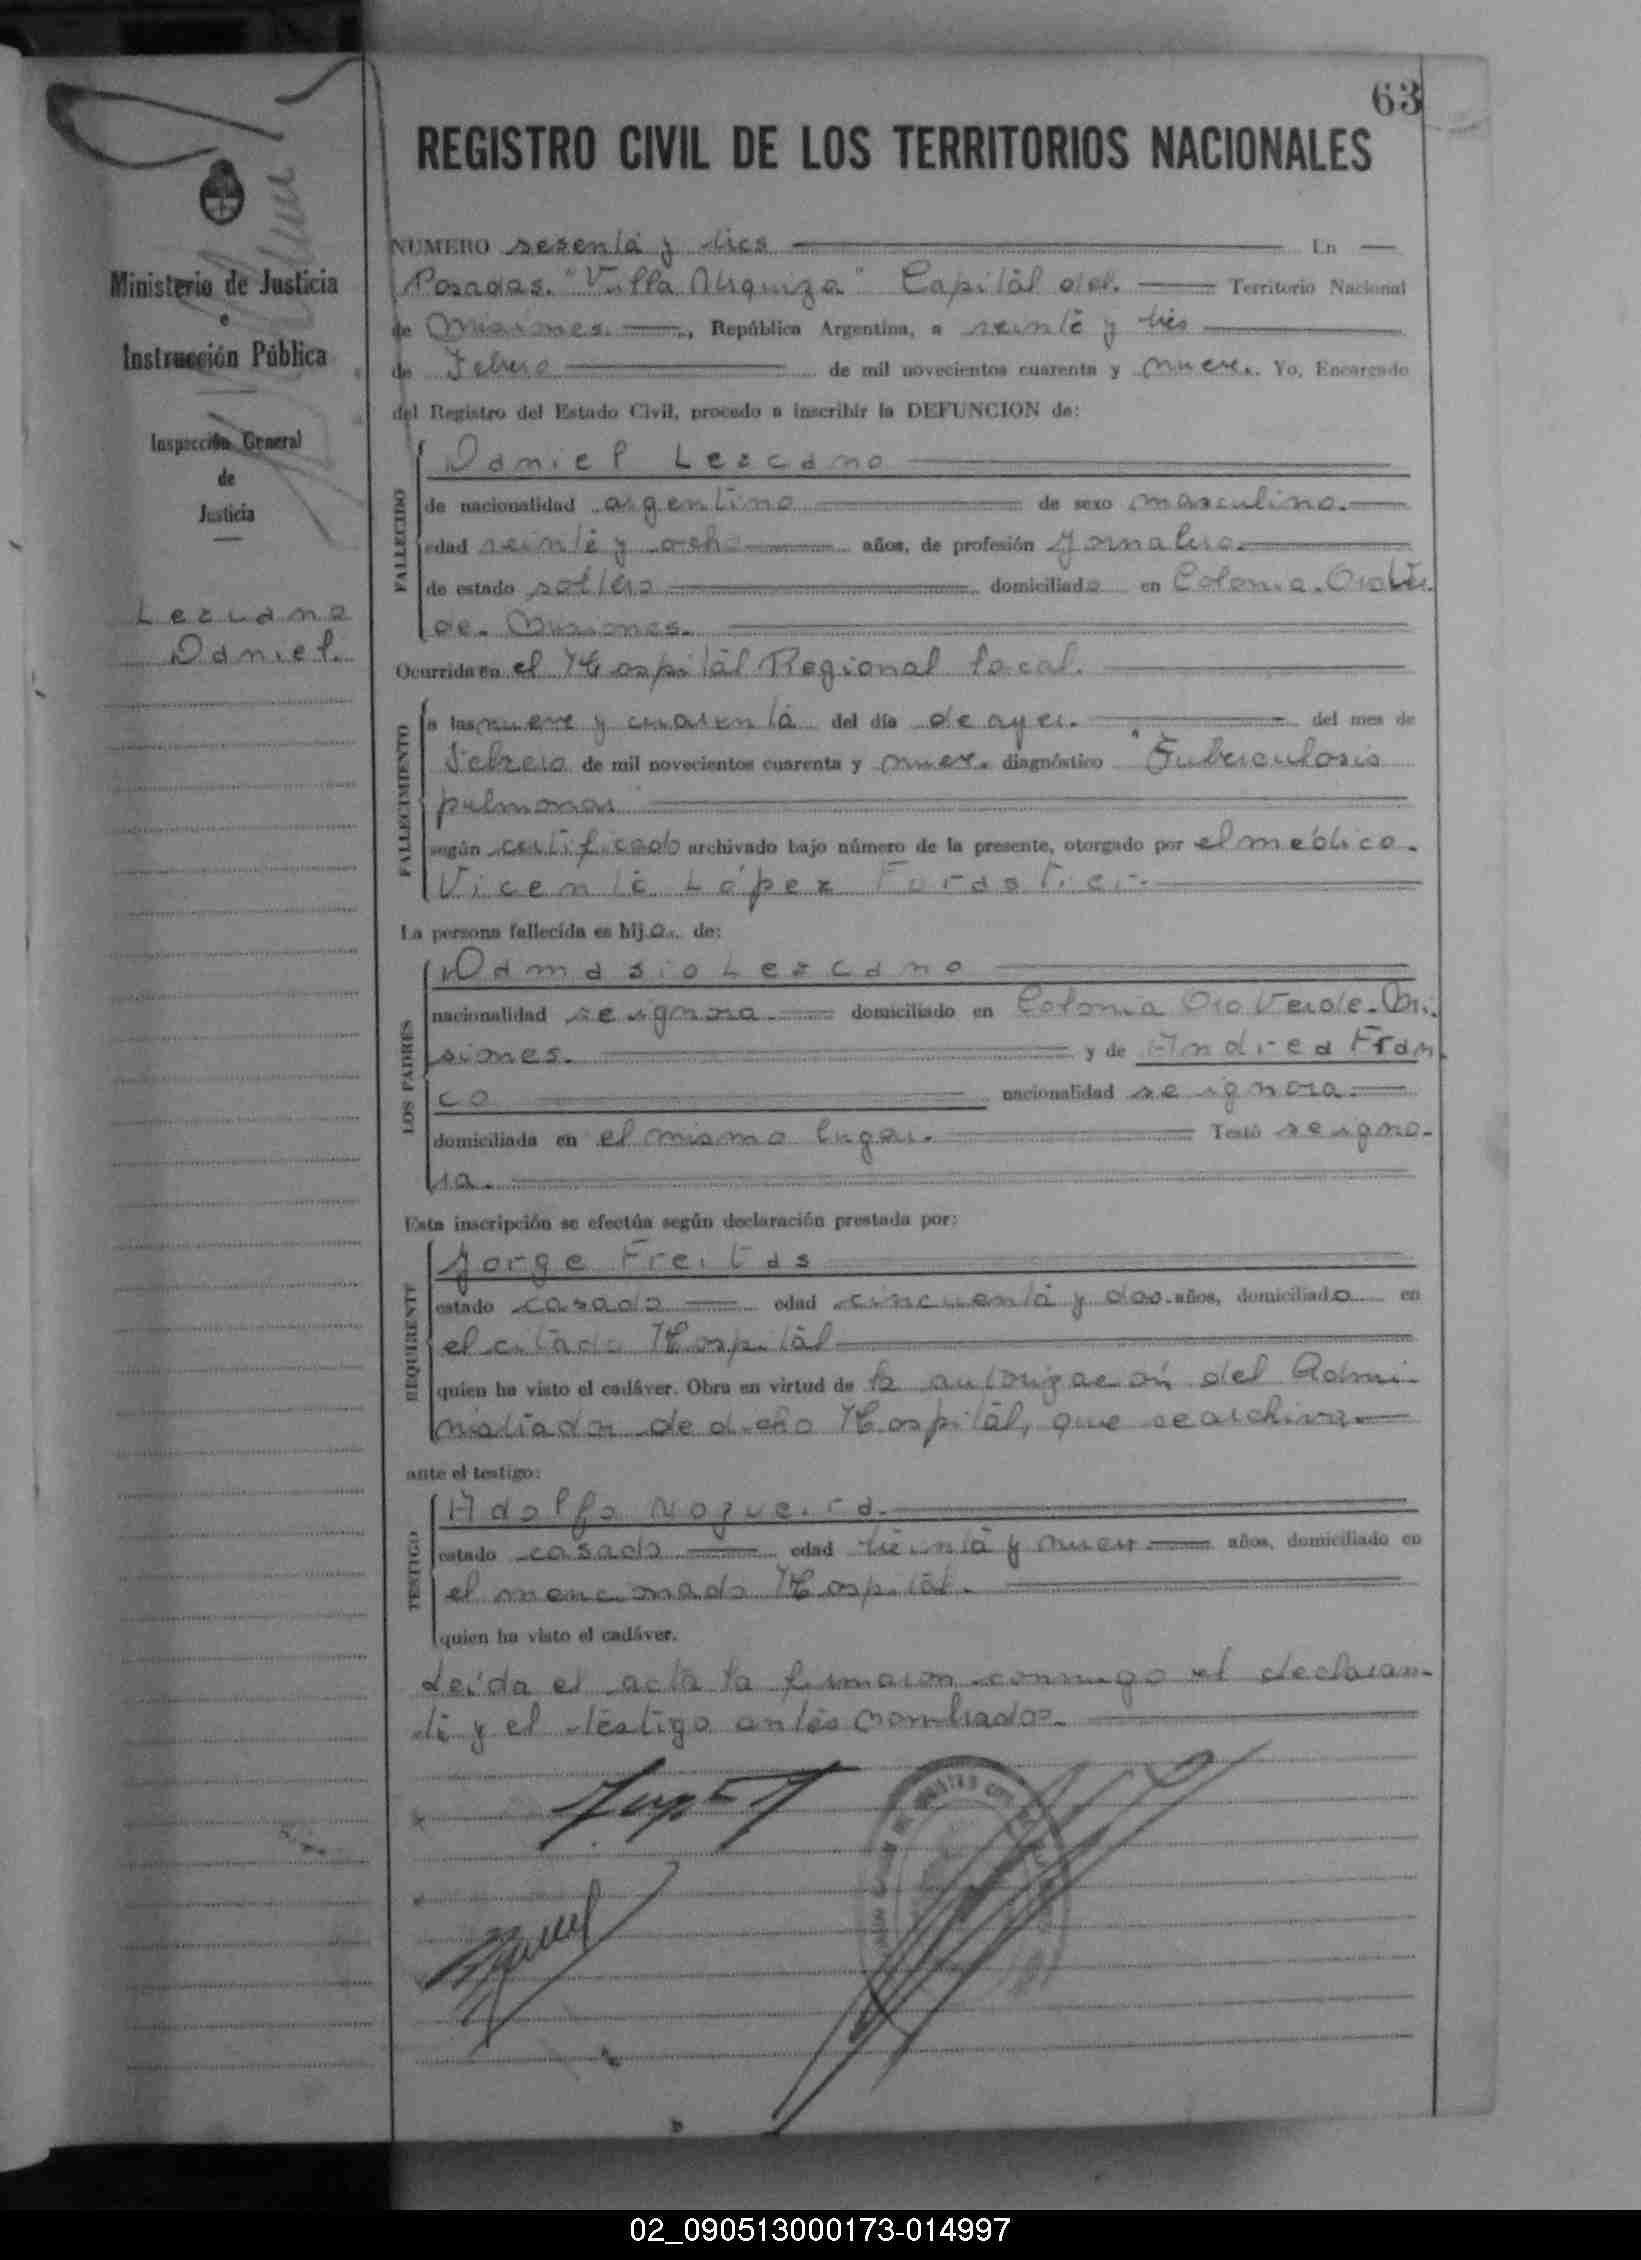 63
REGISTRO CIVIL DE LOS TERRITORIOS NACIONALES
Ministerio de Justicia
e
Instrucción Pública
Inspección General
de
Justicia
Lezcano
Daniel.
NUMERO sesenta y tres En
Posadas. "Villa Urquiza" Capital del. Territorio Nacional
de Misiones. , República Argentina, a veinte y tres
de Febrero de mil novecientos cuarenta y nueve. Yo, Encargado
del Registro del Estado Civil, procedo a inscribir la DEFUNCION de:
FALLECIDO
Daniel Lezcano
de nacionalidad argentino de sexo masculino.
edad veinte y ocho años, de profesión Jornalero.
de estado soltero domiciliado en Colonia. Oro Ver.
de. Misiones.
Ocurrida en el Hospital Regional local.
FALLECIMIENTO
a las nueve y cuarenta del día de ayer. del mes de
Febrero de mil novecientos cuarenta y nueve. diagnóstico "Tuberculosis
pulmonar
según certificado archivado bajo número de la presente, otorgado por el médico.
Vicente López Forastier.
La persona fallecida es hijo. de:
LOS PADRES
Damasio Lezcano
nacionalidad se ignora. domiciliado en Colonia Oro Verde. Mi.
siones. y de Andrea Fran.
co nacionalidad se ignora.
domiciliada en el mismo lugar. Testó se igno-
ra.
Esta inscripción se efectúa según declaración prestada por:
REQUIRENTE
Jorge Freitas
estado casado edad cincuenta y dos años, domiciliado en
el citado Hospital
quien ha visto el cadáver. Obra en virtud de la autorización del Admi-
nistrador de dicho Hospital, que se archiva.
ante el testigo:
TESTIGO
Adolfo Nogueira.
estado casado edad treinta y nueve años, domiciliado en
el mencionado Hospital.
quien ha visto el cadáver.
Leída el acta la firmaron conmigo el declaran-
te y el testigo antes nombrados.
02_090513000173-014997